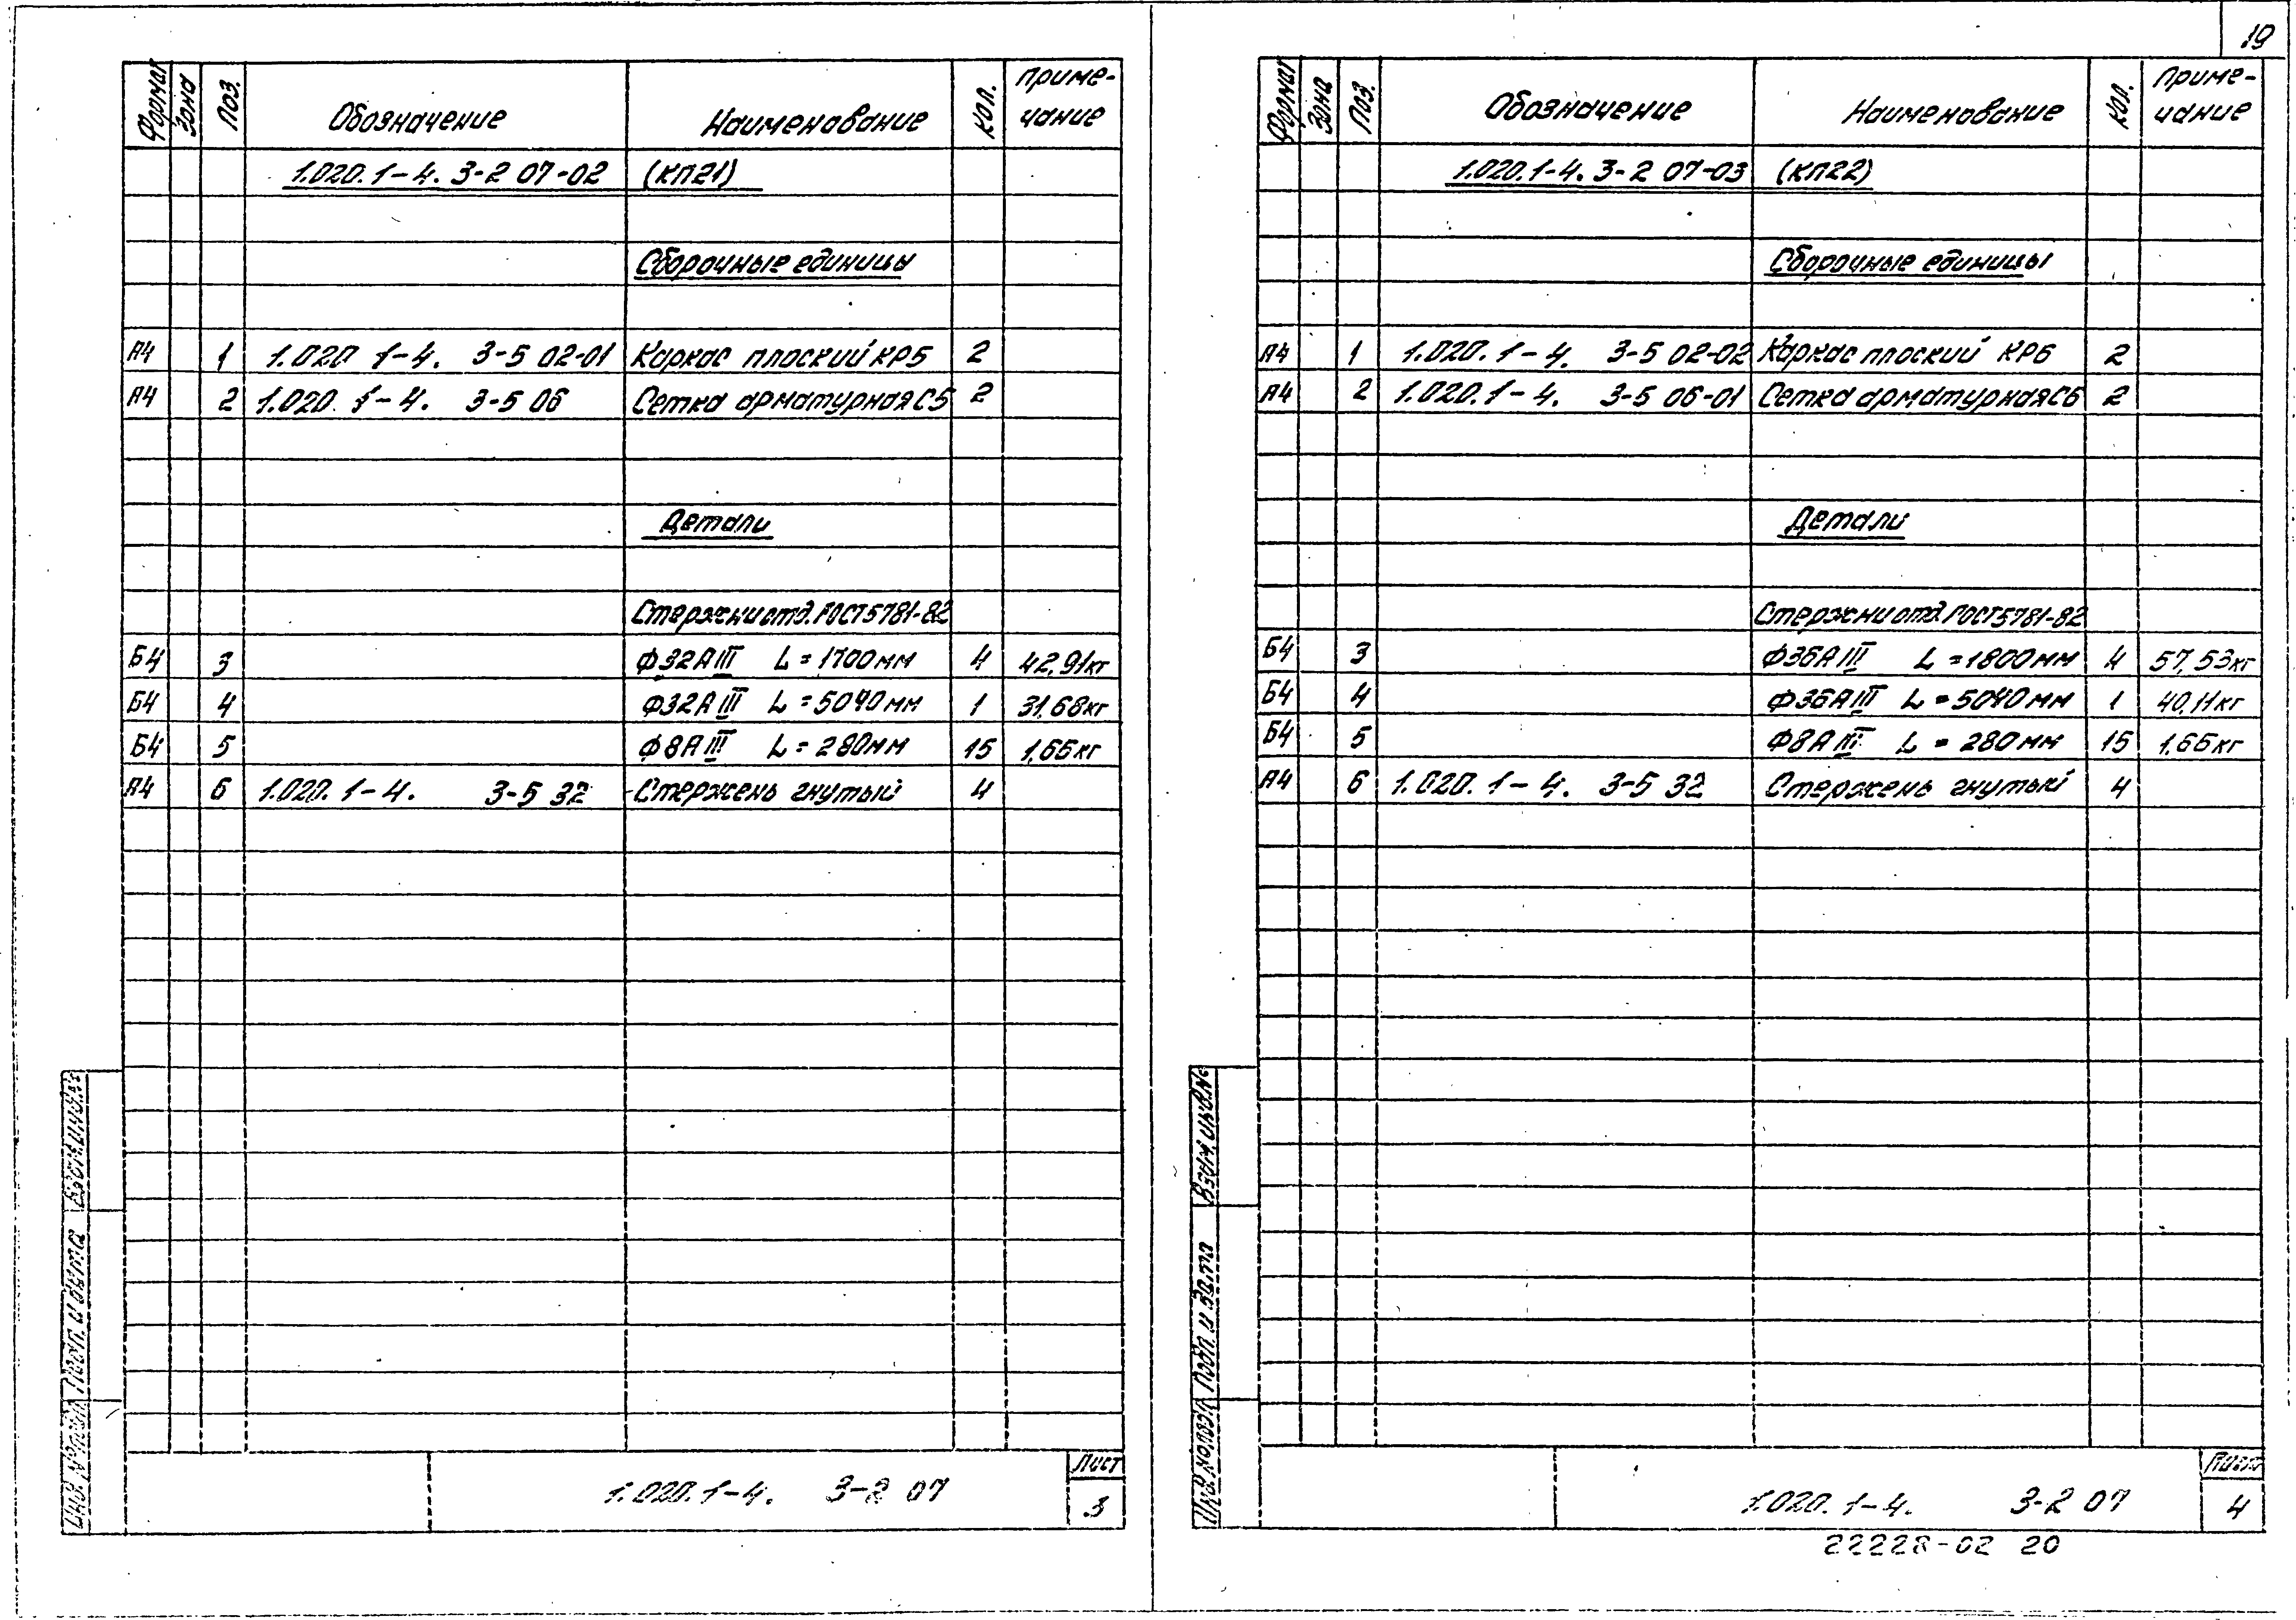 19
Формат Зона Поз. Обозначение Наименование Кол. Приме-
чание
1.020.1-4. 3-2 07-02 (КП21)
Сборочные единицы
А4 1 1.020 1-4. 3-5 02-01 Каркас плоский КР5 2
А4 2 1.020. 1-4. 3-5 06 Сетка арматурная С5 2
Детали
Стержни отд. ГОСТ 5781-82
Б4 3 Ф32АIII L=1700мм 4 42,91кг
Б4 4 Ф32АIII L=5040мм 1 31,68кг
Б4 5 Ф8АIII L=280мм 15 1,65кг
А4 6 1.020. 1-4. 3-5 32 Стержень гнутый 4
Инв. № подл. Подп. и дата Взам. инв. №
1.020.1-4. 3-2 07
Лист
3
Формат Зона Поз. Обозначение Наименование Кол. Приме-
чание
1.020.1-4. 3-2 07-03 (КП22)
Сборочные единицы
А4 1 1.020.1-4. 3-5 02-02 Каркас плоский КР6 2
А4 2 1.020.1-4. 3-5 06-01 Сетка арматурная С6 2
Детали
Стержни отд. ГОСТ 5781-82
Б4 3 Ф36АIII L=1800мм 4 57,53кг
Б4 4 Ф36АIII L=5040мм 1 40,11кг
Б4 5 Ф8АIII L=280мм 15 1,65кг
А4 6 1.020. 1-4. 3-5 32 Стержень гнутый 4
Инв. № подл. Подп. и дата Взам. инв. №
1.020. 1-4. 3-2 07
Лист
4
22228-02 20